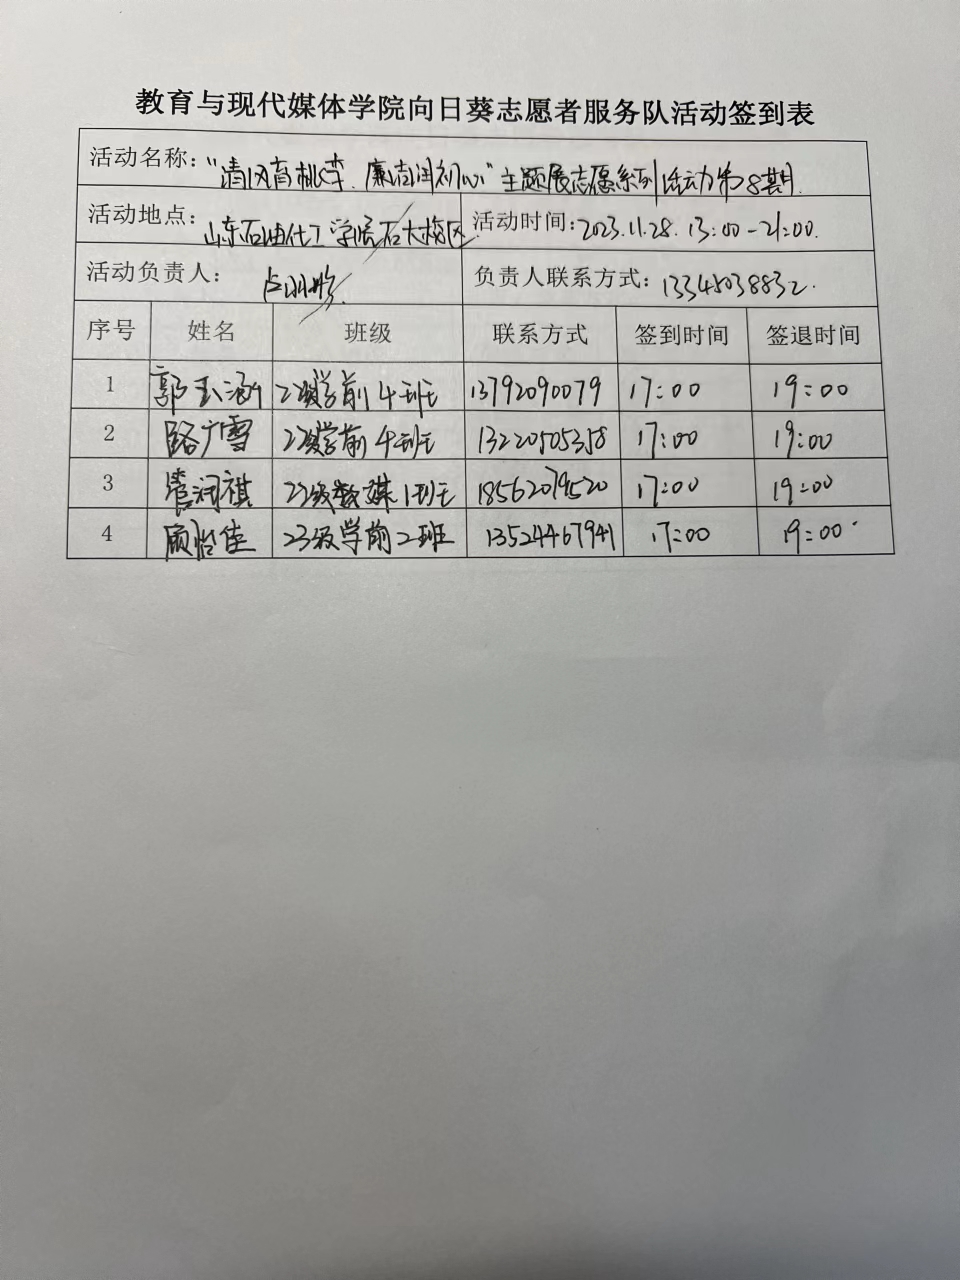 教育与现代媒体学院向日葵志愿者服务队活动签到表
活动名称：“清风育桃李，廉洁润初心”主题展志愿系列活动第28期
活动地点： 山东石油化工学院石大校区 活动时间：2023.11.28. 13:00-21:00.
活动负责人： 负责人联系方式：13345038832.
序号 姓名 班级 联系方式 签到时间 签退时间
1 郭玉涵 22级学前4班 13792090079 17:00 19:00
2 路广雪 22级学前4班 13220505358 17:00 19:00
3 管润祺 22级数媒1班 18562079520 17:00 19:00
4 顾怡佳 23级学前2班 13524467941 17:00 19:00